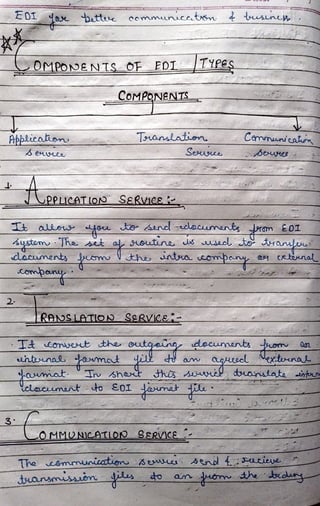 EDI for better communication & business.
COMPONENTS OF EDI / TYPES
COMPONENTS
Application Translation Communication
Service Service Source
1. APPLICATION SERVICE :-
It allow you to send documents from EDI
system. The set of routine is used to transfer
documents from the intra company or external
company.
2. TRANSLATION SERVICE :-
It convert the outgoing documents from an
internal format file to an agreed external
format. In short this service translate
document to EDI format file.
3. COMMUNICATION SERVICE :-
The communication service send & recieve
transmission files to an from the trading